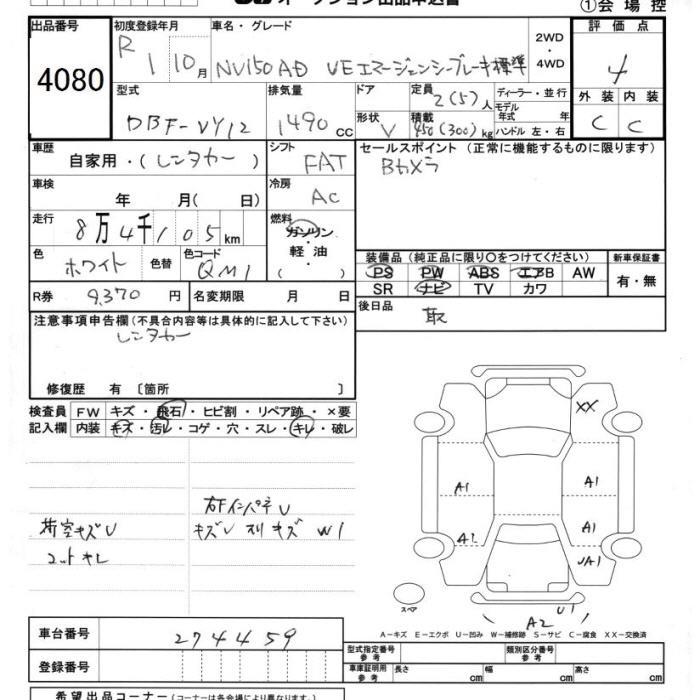 オークション出品申込書
①会場控
出品番号
4080
初度登録年月
R 1 10月
車名・グレード
NV150AD VEエマージェンシーブレーキ標準
2WD
・
4WD
評価点
4
型式
DBF-VY12
排気量
1490cc
ドア
定員
2(5)人
ディーラー・並行
モデル
年式 年
形状
V
積載
450(300)kg
ハンドル 左・右
外装 内装
C C
車歴
自家用・(レンタカー)
シフト
FAT
セールスポイント (正常に機能するものに限ります)
Bカメラ
車検
年 月(日)
冷房
AC
走行
8万4千105km
燃料
ガソリン
軽・油
( )
色
ホワイト
色替
色コード
QM1
装備品(純正品に限り○をつけてください)
PS PW ABS エアB AW
SR ナビ TV カワ
新車保証書
有・無
R券 9,370円
名変期限 月 日
後日品
取
注意事項申告欄(不具合内容等は具体的に記入して下さい)
レンタカー
修復歴 有〔箇所 〕
検査員 FW キズ・飛石・ヒビ割・リペア跡・×要
記入欄 内装 キズ・汚レ・コゲ・穴・スレ・キレ・破レ
荷室キズU
コットキレ
右FインパネU
キズU スリキズ W1
XX
A1
A1
A1
A2
UA1
U1
A2
スペア
A-キズ E-エクボ U-凹み W-補修跡 S-サビ C-腐食 XX-交換済
車台番号
274459
登録番号
型式指定番号
参考
類別区分番号
参考
車庫証明用
参考
長さ cm 幅 cm 高さ cm
希望出品コーナー(コーナー名は各会場により異なります)